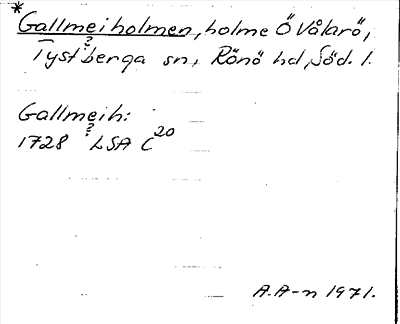 *Gallmeiholmen, holme Ö Vålarö,
?
Tystberga sn, Rönö hd, Söd. l.
Gallmeih:
?
1728 LSA C20
A.A-n 1971.